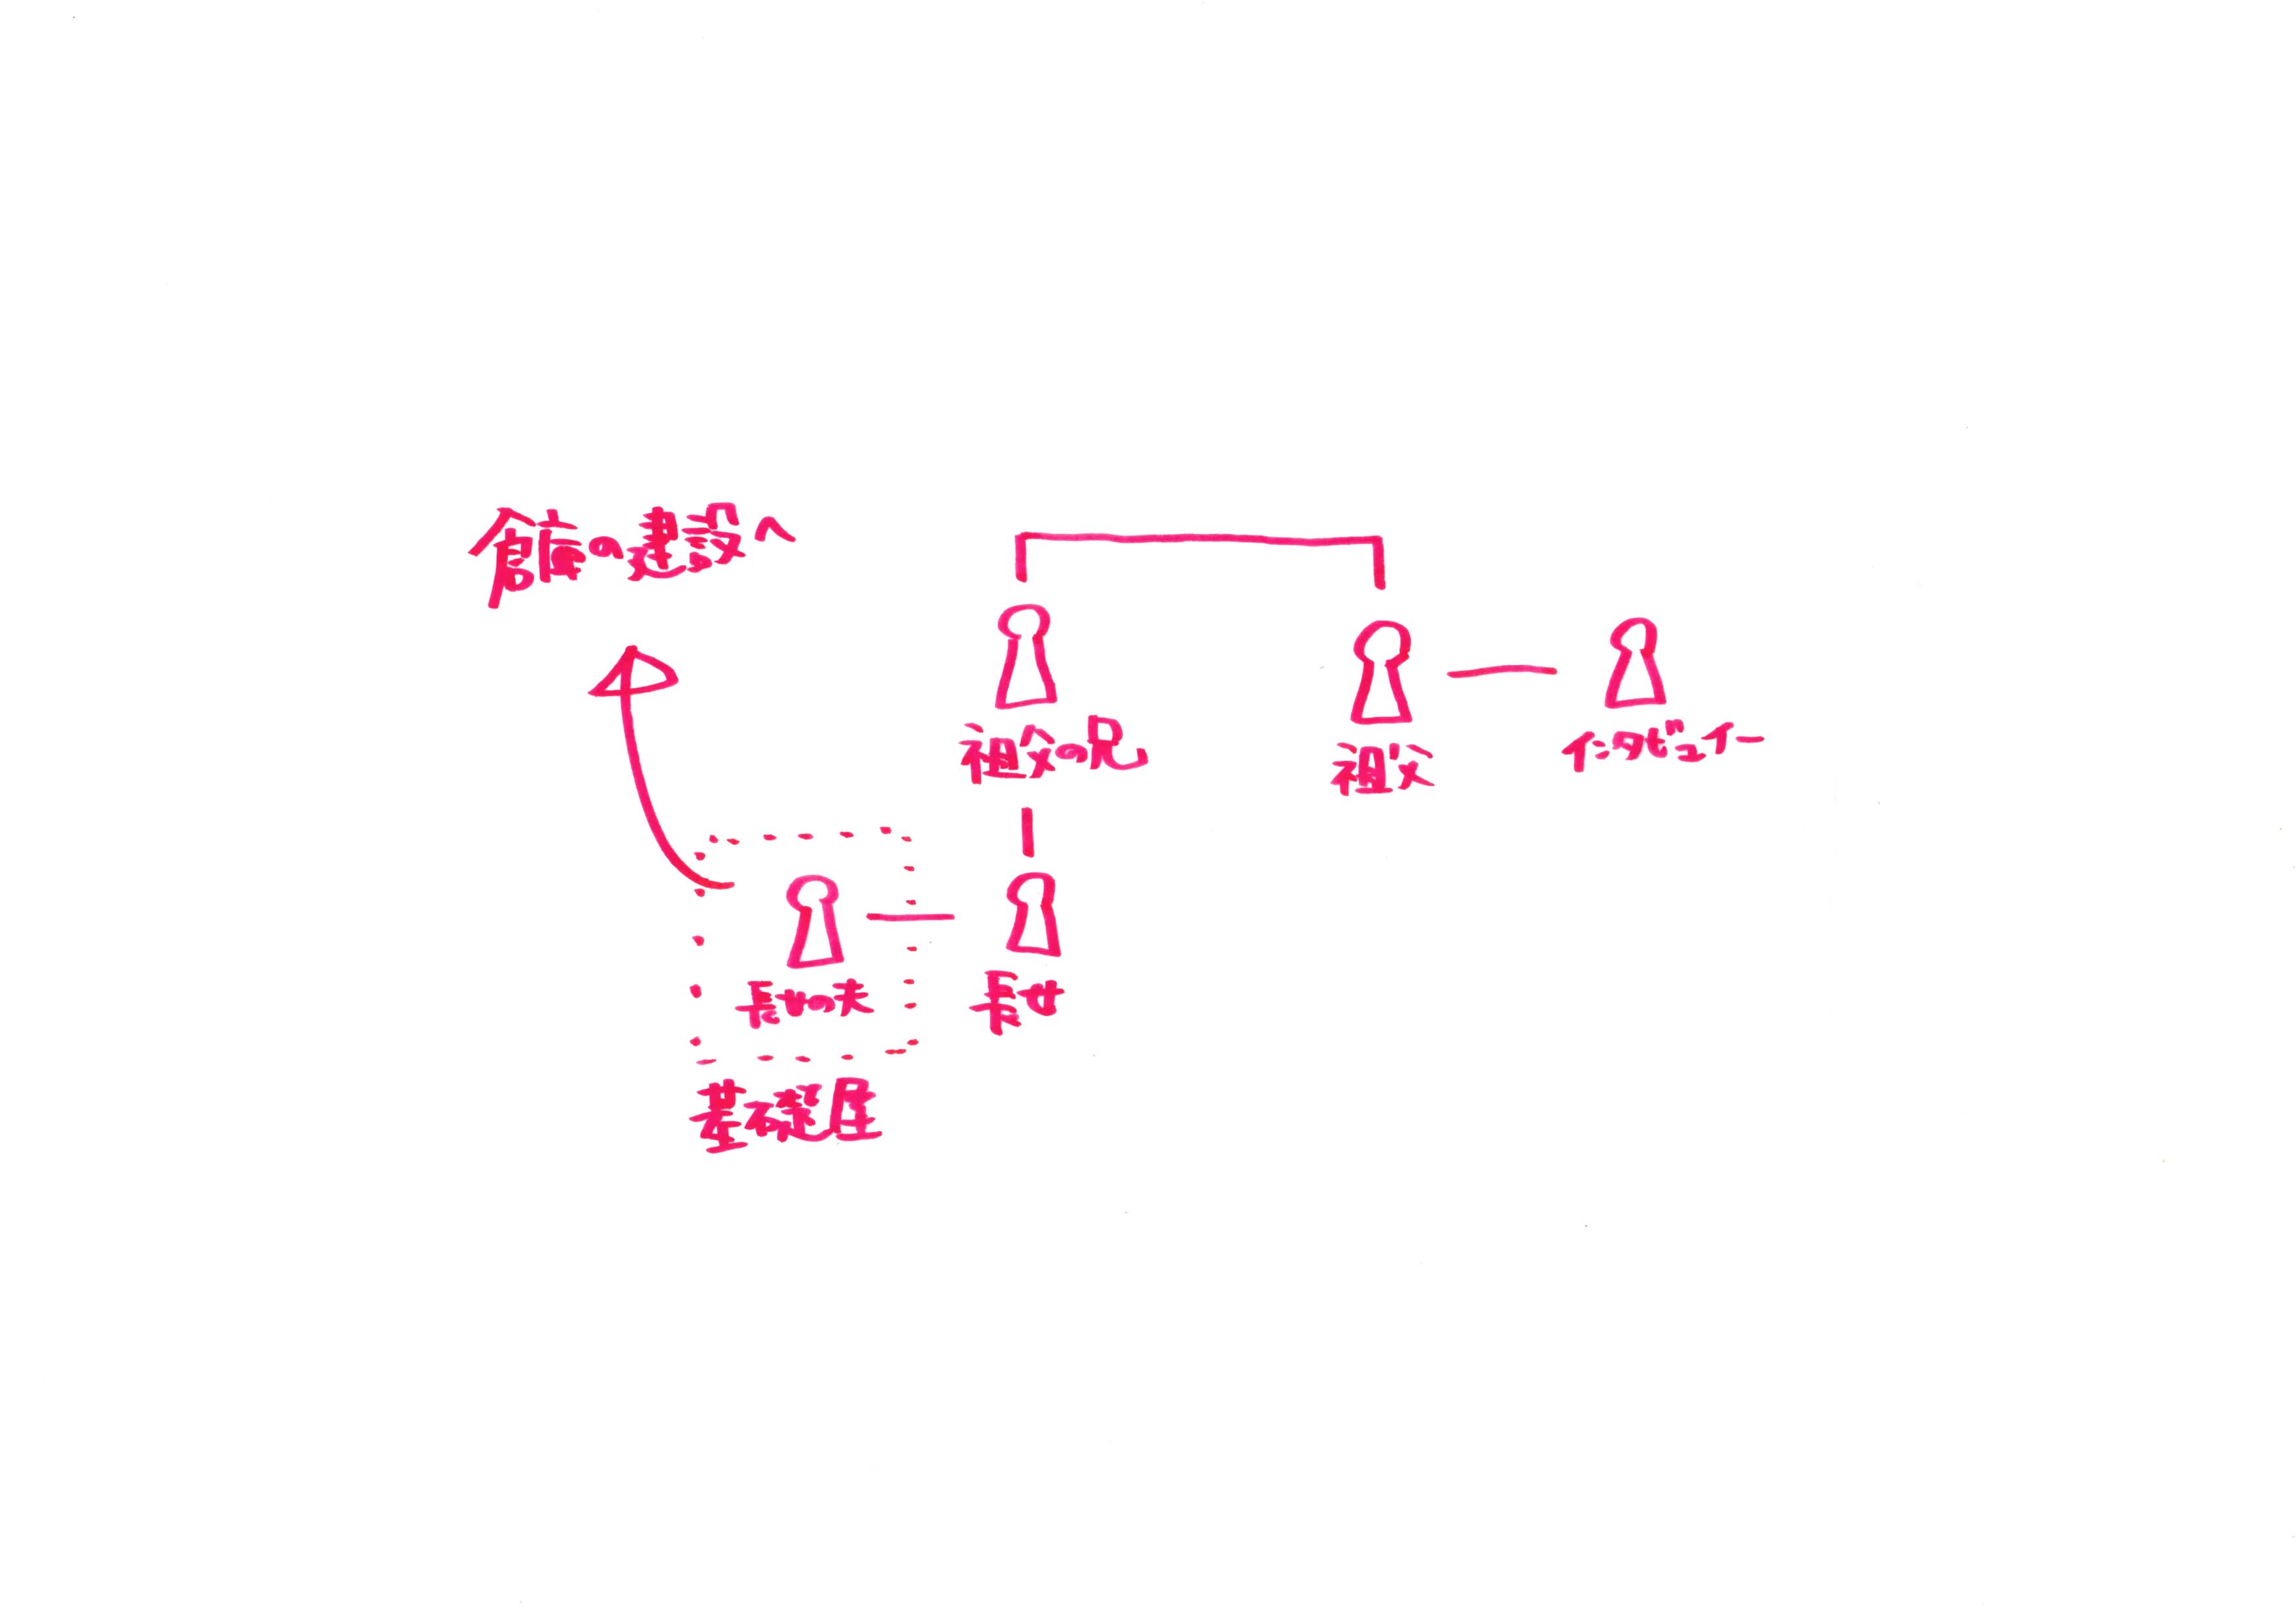 倉庫の建設へ
祖父の兄
祖父
インタビュイー
長女の夫
長女
基礎屋